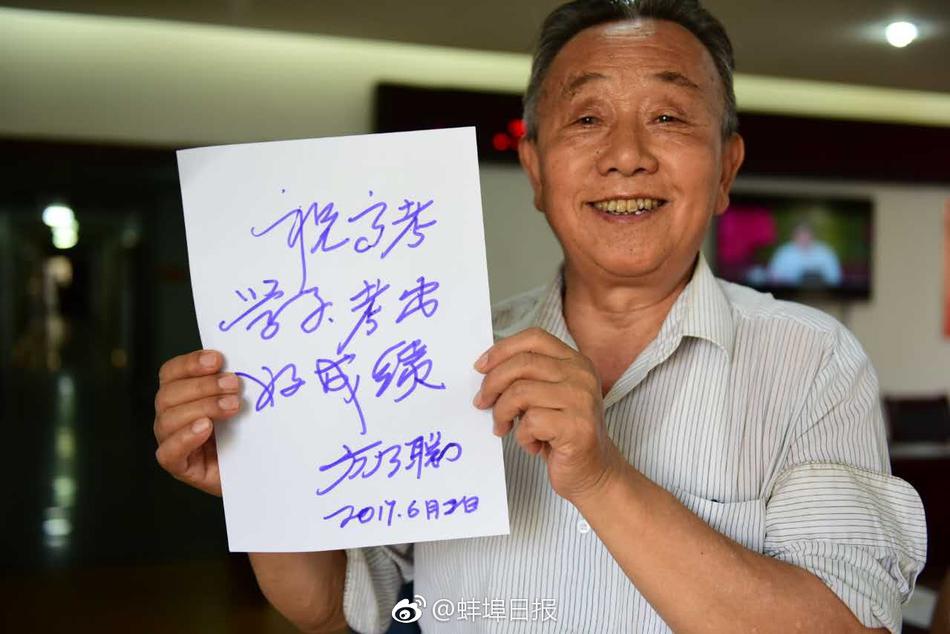 祝高考
学子考出
好成绩
2017.6月2日
@蚌埠日报